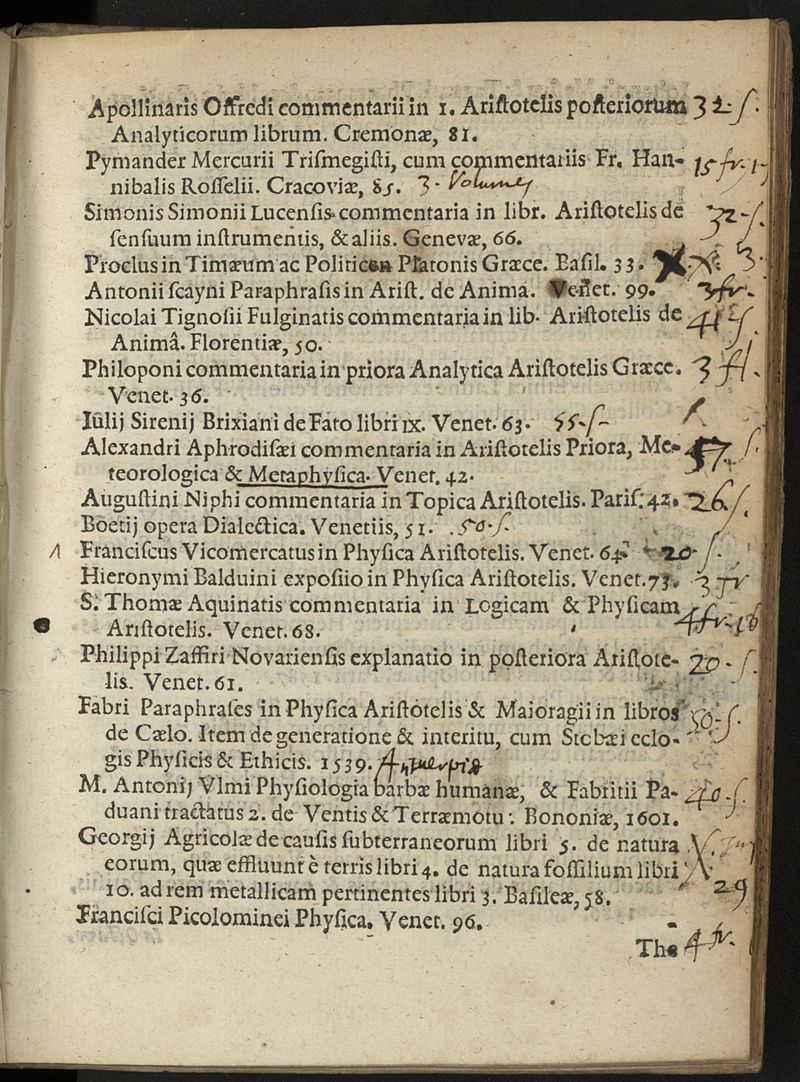 Apollinaris Offredi commentarii in 1. Ariſtotelis poſteriorum 32 ſ.
Analyticorum librum. Cremonæ, 81.
Pymander Mercurii Triſmegiſti, cum commentariis Fr. Han- 15 fr.
nibalis Roſſelii. Cracoviæ, 85. 3. Volumes
Simonis Simonii Lucenſis commentaria in libr. Ariſtotelis de 32 ſ.
ſenſuum inſtrumentis, & aliis. Genevæ, 66.
Proclus in Timæum ac Politicen Platonis Græce. Baſil. 33.
Antonii ſcayni Paraphraſis in Ariſt. de Anima. Venet. 99. 3 fr.
Nicolai Tignoſii Fulginatis commentaria in lib. Ariſtotelis de
Animâ. Florentiæ, 50.
Philoponi commentaria in priora Analytica Ariſtotelis Græce. 3 fl.
Venet. 36.
Iulij Sirenij Brixiani de Fato libri ix. Venet. 63. 55. ſ
Alexandri Aphrodiſæi commentaria in Ariſtotelis Priora, Me- 57. ſ.
teorologica & Metaphyſica. Venet. 42.
Auguſtini Niphi commentaria in Topica Ariſtotelis. Pariſ. 42. 26 ſ.
Boetij opera Dialectica. Venetiis, 51. 50. ſ.
Franciſcus Vicomercatus in Phyſica Ariſtotelis. Venet. 64. 20 ſ.
Hieronymi Balduini expoſiio in Phyſica Ariſtotelis. Venet. 73. 3 fr
S. Thomæ Aquinatis commentaria in Logicam & Phyſicam 4 fr.
Ariſtotelis. Venet. 68.
Philippi Zaffiri Novarienſis explanatio in poſteriora Ariſtote- 20. ſ.
lis. Venet. 61.
Fabri Paraphraſes in Phyſica Ariſtotelis & Maioragii in libros 50 ſ.
de Cælo. Item de generatione & interitu, cum Stobæi eclo-
gis Phyſicis & Ethicis. 1539. Antuerpiæ
M. Antonij Vlmi Phyſiologia barbæ humanæ, & Fabritii Pa- 40. ſ.
duani tractatus 2. de Ventis & Terræmotu. Bononiæ, 1601.
Georgij Agricolæ de cauſis ſubterraneorum libri 5. de natura
eorum, quæ effluunt è terris libri 4. de natura foſſilium libri
10. ad rem metallicam pertinentes libri 3. Baſileæ, 58. 29
Franciſci Picolominei Phyſica. Venet. 96.
The 4 fr.